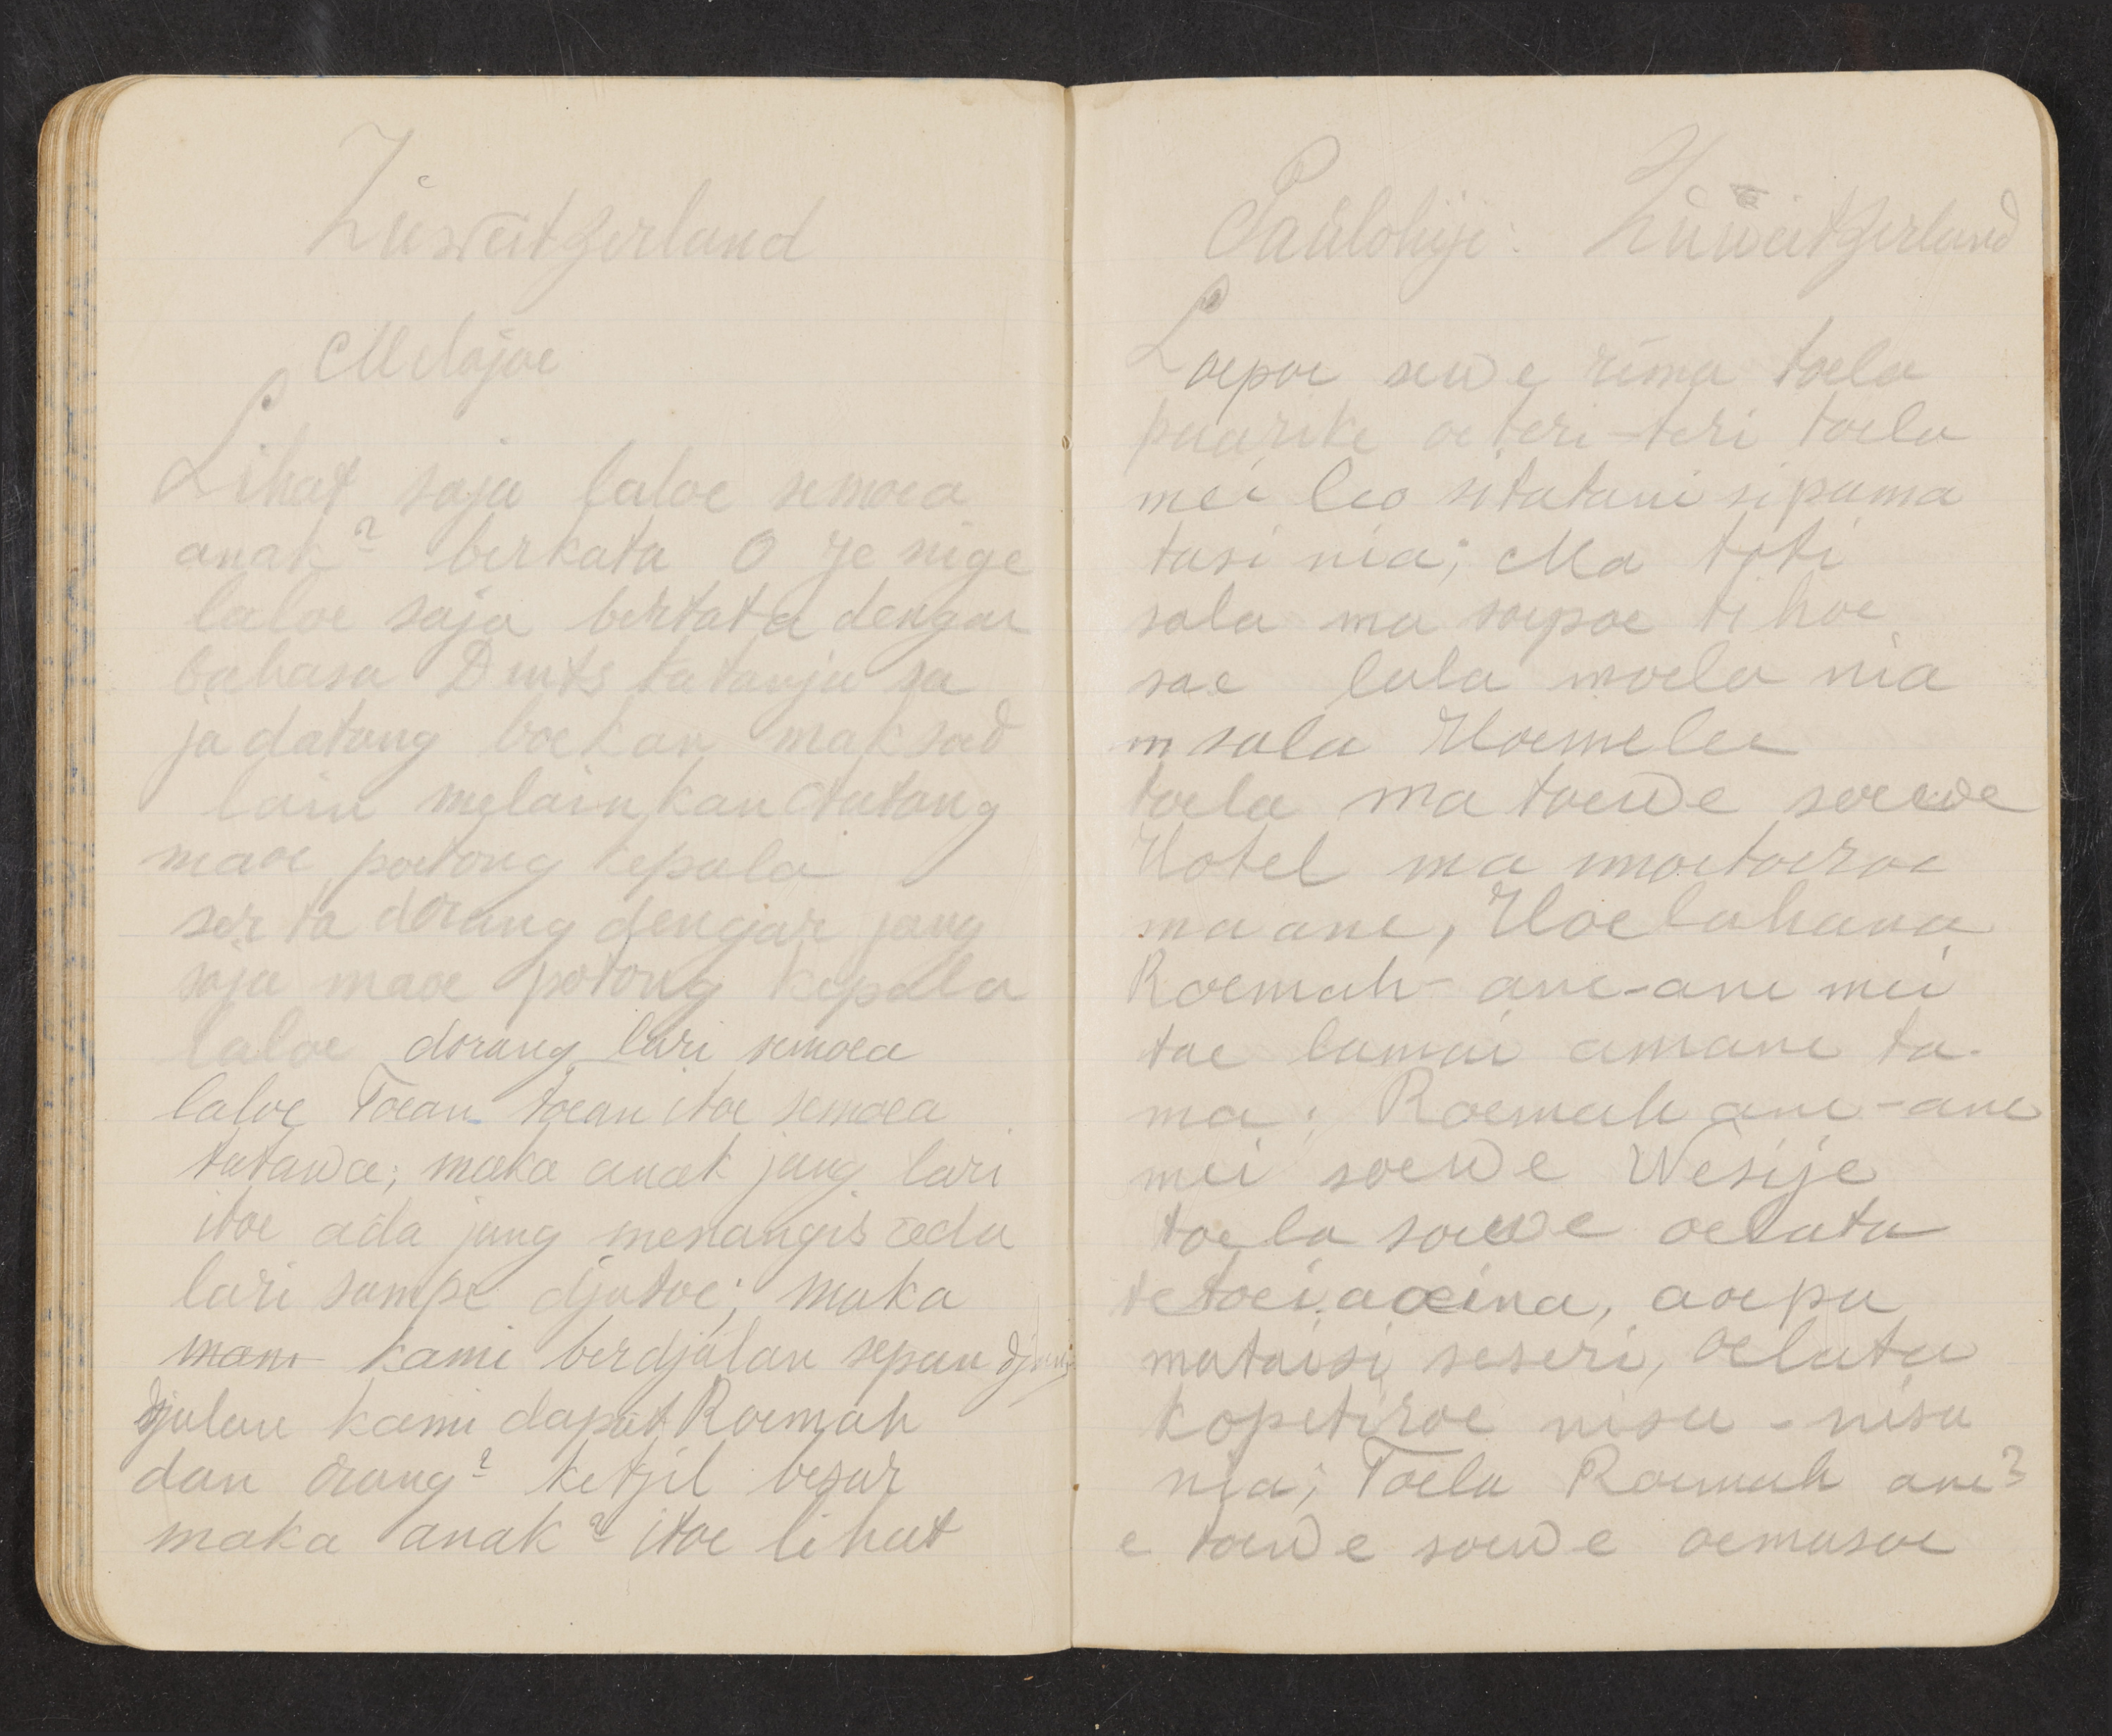 Züsweitzerland
Melajoe
Lihat saja laloe semoea
anak² berkata O ze nige
laloe saja bertata dengan
bahasa Duits katanja sa
ja datang boekan maksoed
lain melainkan datang
maoe potong kepala
serta dorang dengar jang
saja maoe potong kepala
laloe dorang lari semoea
laloe Toean toean itoe semoea
tatawa; maka anak jang lari
itoe ada jang menangis ada
lari sampe djatoe; maka
kami berdjalan sepandjang
djalan kami dapat Roemah
dan orang² ketjil besar
maka anak² itoe lihat
Paülohije: Züweitzerland
Loepoe sewe rima toela
paarike oeteri-teri toela
mei leo sitatani sipama
tasi nia; Ma toti
sala ma soepoe tihoe
sae lala moela nia
msala Hoemelee
toela ma toewe soewe
Hotel ma moetoeroe
ma ane, Hoelahana
Roemah-ane-ane mei
toe lamai amane ta-
ma; Roemah ane-ane
mei soewe Wesije
toela soewe oelata
tetoei aoeina, aoepa
mataisi seseri, oelata
kopetiroe nisa-nisa
nia; Toela Roemah ane²
e toewe soewe oemasoe